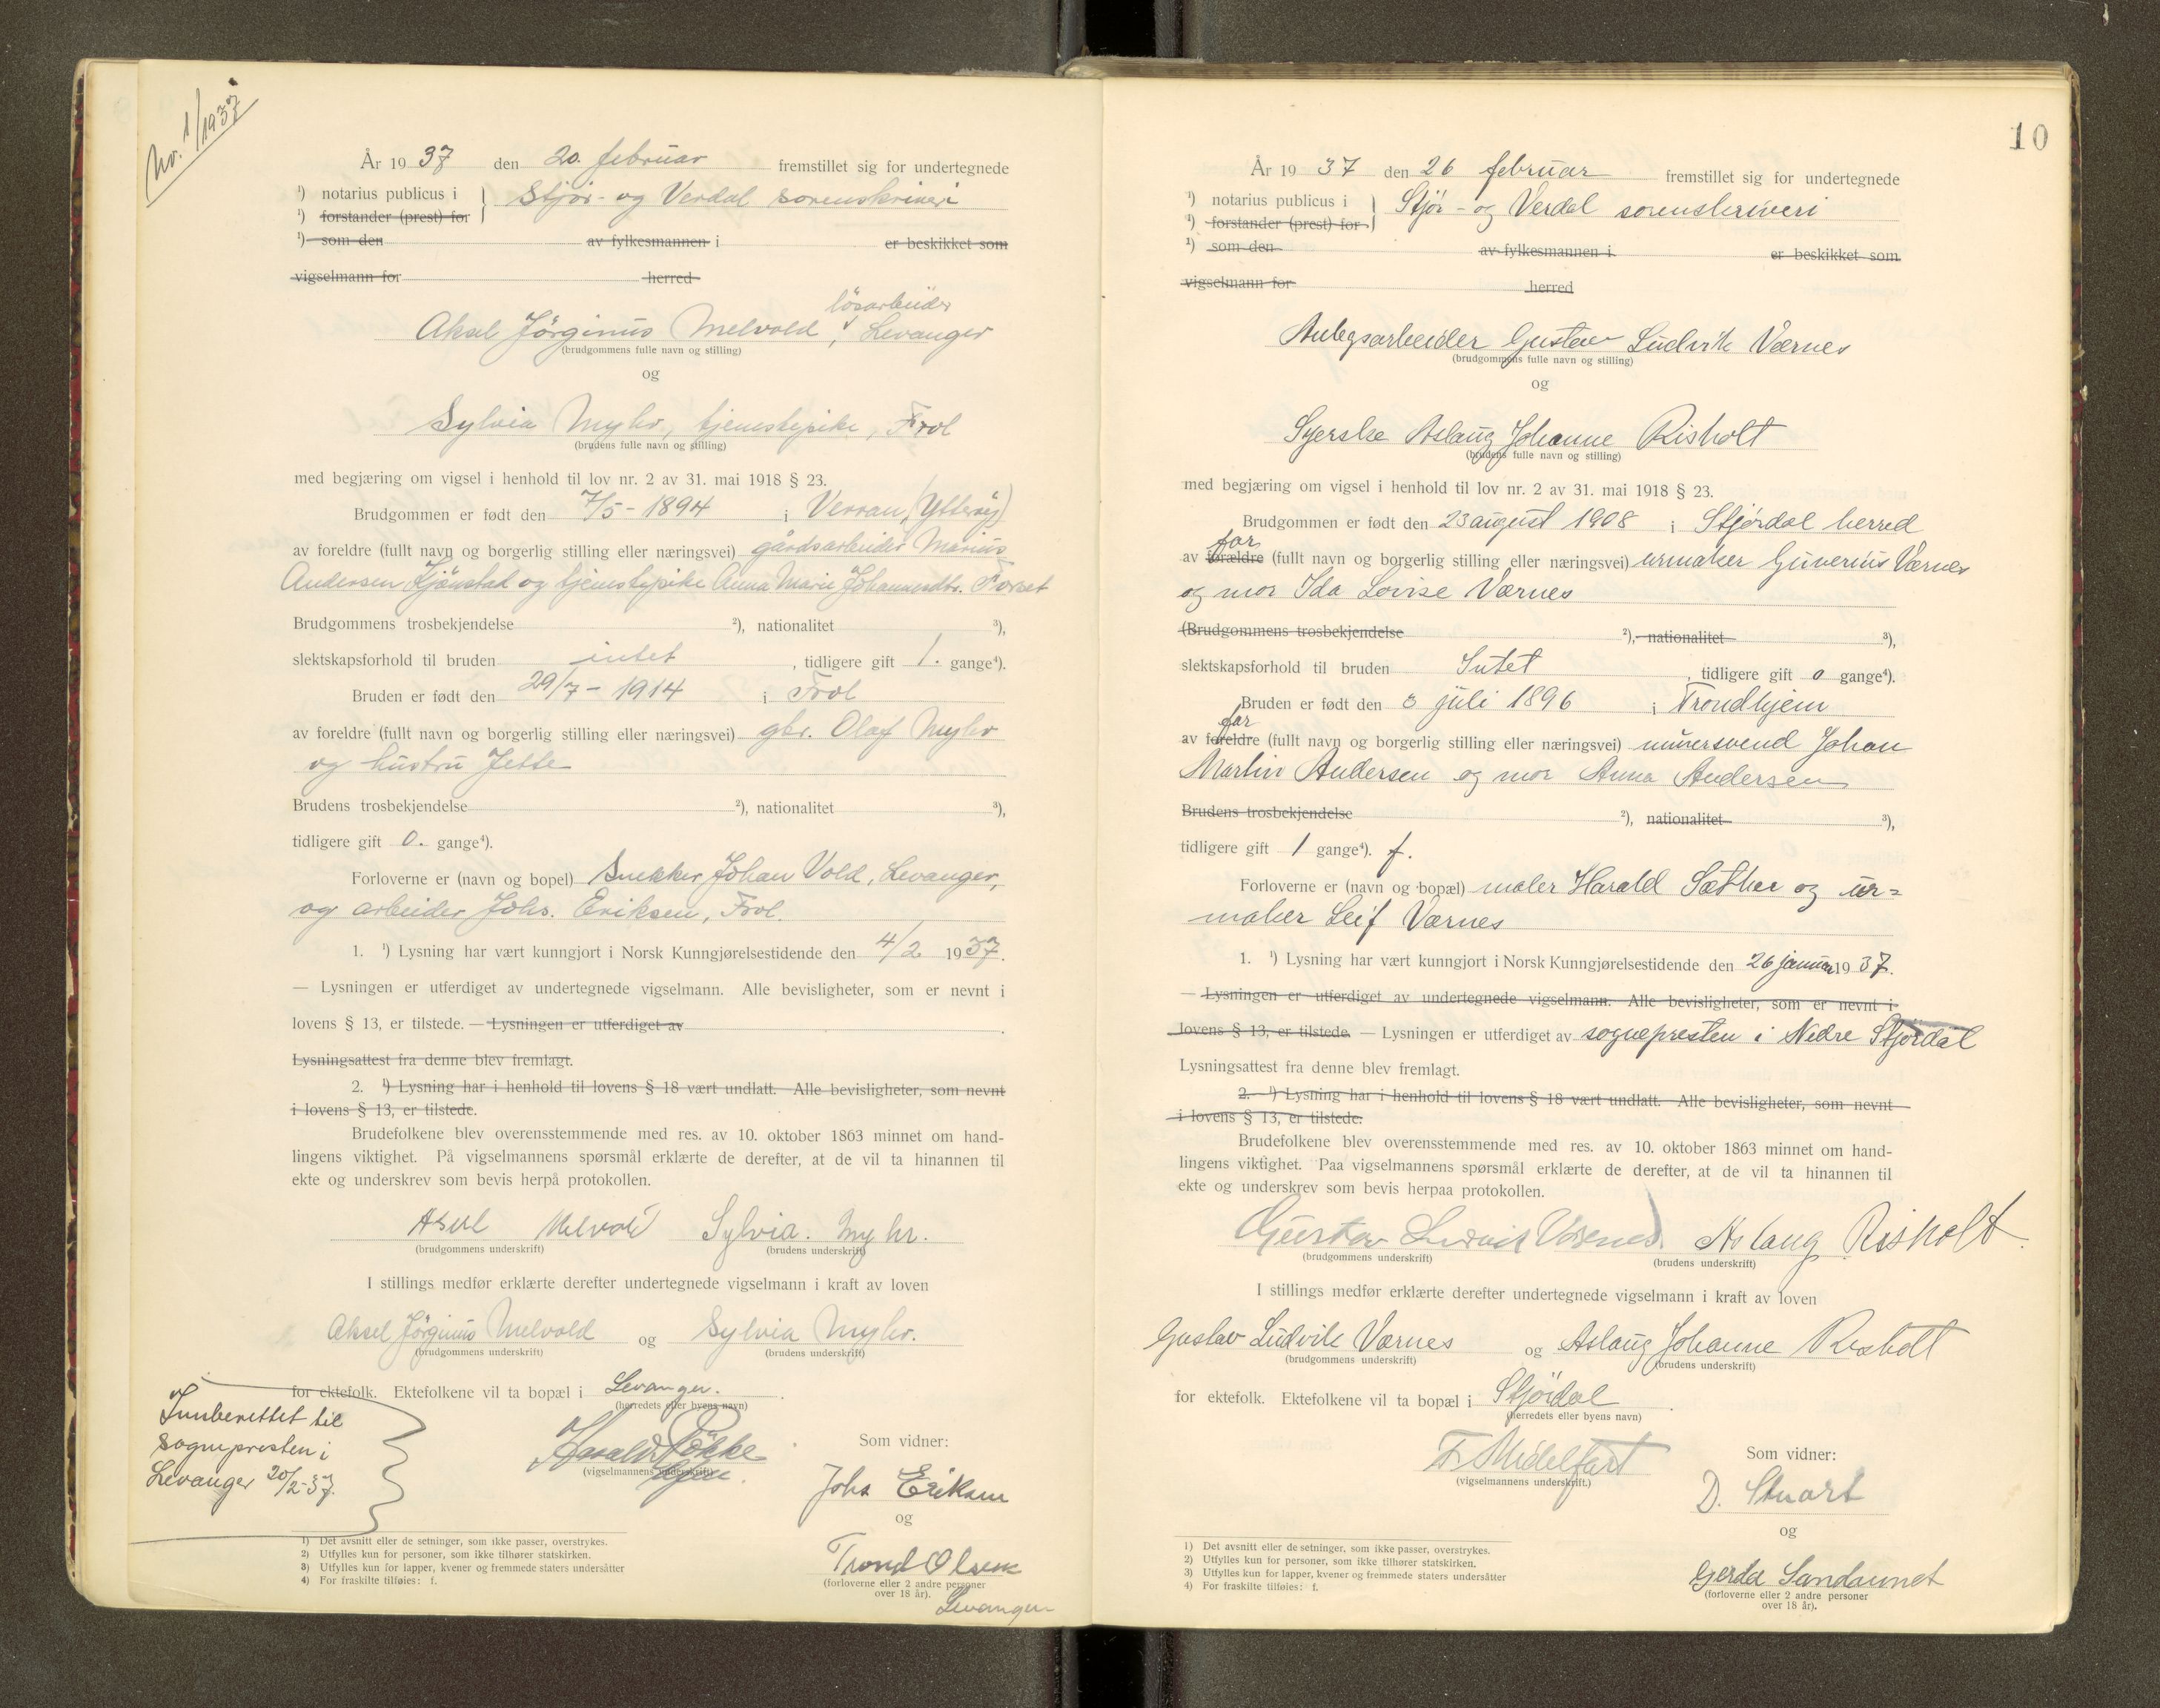 No. 1/1937
År 1937 den 20. februar fremstillet sig for undertegnede
¹) notarius publicus i } Stjør- og Verdal sorenskriveri
¹) forstander (prest) for
¹) som den av fylkesmannen i er beskikket som
vigselmann for herred
lösarbeider
Aksel Jörginus Melvold, Levanger
(brudgommens fulle navn og stilling)
og
Sylvia Myhr, tjenestepike, Frol
(brudens fulle navn og stilling)
med begjæring om vigsel i henhold til lov nr. 2 av 31. mai 1918 § 23.
Brudgommen er født den 7/5 - 1894 i Verran, (Ytteröy)
av foreldre (fullt navn og borgerlig stilling eller næringsvei) gårdsarbeider Marius
Andersen Kjönstad og tjenestepike Anna Marie Johannesdtr. Forset
Brudgommens trosbekjendelse ²), nationalitet ³),
slektskapsforhold til bruden intet, tidligere gift 1. gange⁴).
Bruden er født den 29/7 - 1914 i Frol
av foreldre (fullt navn og borgerlig stilling eller næringsvei) gbr. Olaf Myhr
og hustru Jette
Brudens trosbekjendelse ²), nationalitet ³),
tidligere gift 0. gange⁴).
Forloverne er (navn og bopel) Snekker Johan Vold, Levanger,
og arbeider Johs. Eriksen, Frol.
1. ¹) Lysning har vært kunngjort i Norsk Kunngjørelsestidende den 4/2 1937.
— Lysningen er utferdiget av undertegnede vigselmann. Alle bevisligheter, som er nevnt i
lovens § 13, er tilstede. — Lysningen er utferdiget av
Lysningsattest fra denne blev fremlagt.
2. ¹) Lysning har i henhold til lovens § 18 vært undlatt. Alle bevisligheter, som nevnt
i lovens § 13, er tilstede.
Brudefolkene blev overensstemmende med res. av 10. oktober 1863 minnet om hand-
lingens viktighet. På vigselmannens spørsmål erklærte de derefter, at de vil ta hinannen til
ekte og underskrev som bevis herpå protokollen.
Melvold Sylvia. Myhr.
(brudgommens underskrift) (brudens underskrift)
I stillings medfør erklærte derefter undertegnede vigselmann i kraft av loven
Aksel Jörginus Melvold og Sylvia Myhr.
(brudgommens underskrift) (brudens underskrift)
for ektefolk. Ektefolkene vil ta bopæl i Levanger.
(herredets eller byens navn)
Innberettet til
sognepresten i
Levanger 20/2-37.
Harald
(vigselmannens underskrift)
Som vidner:
Johs Eriksen
og
Trond Olsen
(forloverne eller 2 andre personer
over 18 år).
Levanger
1) Det avsnitt eller de setninger, som ikke passer, overstrykes.
2) Utfylles kun for personer, som ikke tilhører statskirken.
3) Utfylles kun for lapper, kvener og fremmede staters undersåtter
4) For fraskilte tilføies: f.
10
År 1937 den 26 februar fremstillet sig for undertegnede
¹) notarius publicus i } Stjör- og Verdal sorenskriveri
¹) forstander (prest) for
¹) som den av fylkesmannen i er beskikket som
vigselmann for herred
Anlegsarbeider Gustav Ludvik Værnes
(brudgommens fulle navn og stilling)
og
Syerske Aslaug Johanne Risholt
(brudens fulle navn og stilling)
med begjæring om vigsel i henhold til lov nr. 2 av 31. mai 1918 § 23.
Brudgommen er født den 23 august 1908 i Stjördal herred
far
av forældre (fullt navn og borgerlig stilling eller næringsvei) urmaker Gunerius Værnes
og mor Ida Lovise Værnes
(Brudgommens trosbekjendelse ²), nationalitet ³),
slektskapsforhold til bruden Intet, tidligere gift 0 gange⁴).
Bruden er født den 3 juli 1896 i Trondhjem
far
av foreldre (fullt navn og borgerlig stilling eller næringsvei) murersvend Johan
Martin Andersen og mor Anna Andersen
Brudens trosbekjendelse ²), nationalitet ³),
tidligere gift 1 gange⁴). f.
Forloverne er (navn og bopæl) maler Harald Sæther og ur=
maker Leif Værnes
1. ¹) Lysning har vært kunngjort i Norsk Kunngjørelsestidende den 26 januar 1937.
— Lysningen er utferdiget av undertegnede vigselmann. Alle bevisligheter, som er nevnt i
lovens § 13, er tilstede. — Lysningen er utferdiget av sognepresten i Nedre Stjördal
Lysningsattest fra denne blev fremlagt.
2. ¹) Lysning har i henhold til lovens § 18 vært undlatt. Alle bevisligheter, som nevnt
i lovens § 13, er tilstede.
Brudefolkene blev overensstemmende med res. av 10. oktober 1863 minnet om hand-
lingens viktighet. Paa vigselmannens spørsmål erklærte de derefter, at de vil ta hinannen til
ekte og underskrev som bevis herpaa protokollen.
Gustav Ludvik Værnes Aslaug Risholt
(brudgommens underskrift) (brudens underskrift)
I stillings medfør erklærte derefter undertegnede vigselmann i kraft av loven
Gustav Ludvik Værnes og Aslaug Johanne Risholt
(brudgommens underskrift) (brudens underskrift)
for ektefolk. Ektefolkene vil ta bopæl i Stjördal
(herredets eller byens navn)
F. Midelfart
(vigselmannens underskrift.)
Som vidner:
D. Stuart
og
Gerda Sandaunet
(forloverne eller 2 andre personer
over 18 år).
1) Det avsnitt eller de setninger, som ikke passer, overstrykes.
2) Utfylles kun for personer, som ikke tilhører statskirken.
3) Utfylles kun for lapper, kvener og fremmede staters undersåtter
4) For fraskilte tilføies: f.